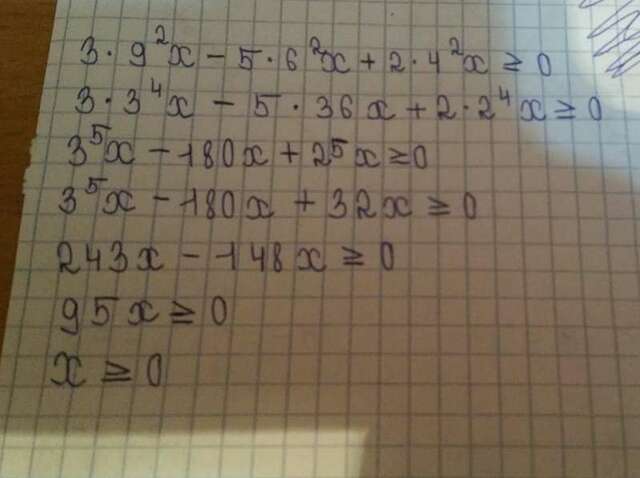 3 · 9²x - 5 · 6²x + 2 · 4²x ≥ 0
3 · 3⁴x - 5 · 36x + 2 · 2⁴x ≥ 0
3⁵x - 180x + 2⁵x ≥ 0
3⁵x - 180x + 32x ≥ 0
243x - 148x ≥ 0
95x ≥ 0
x ≥ 0